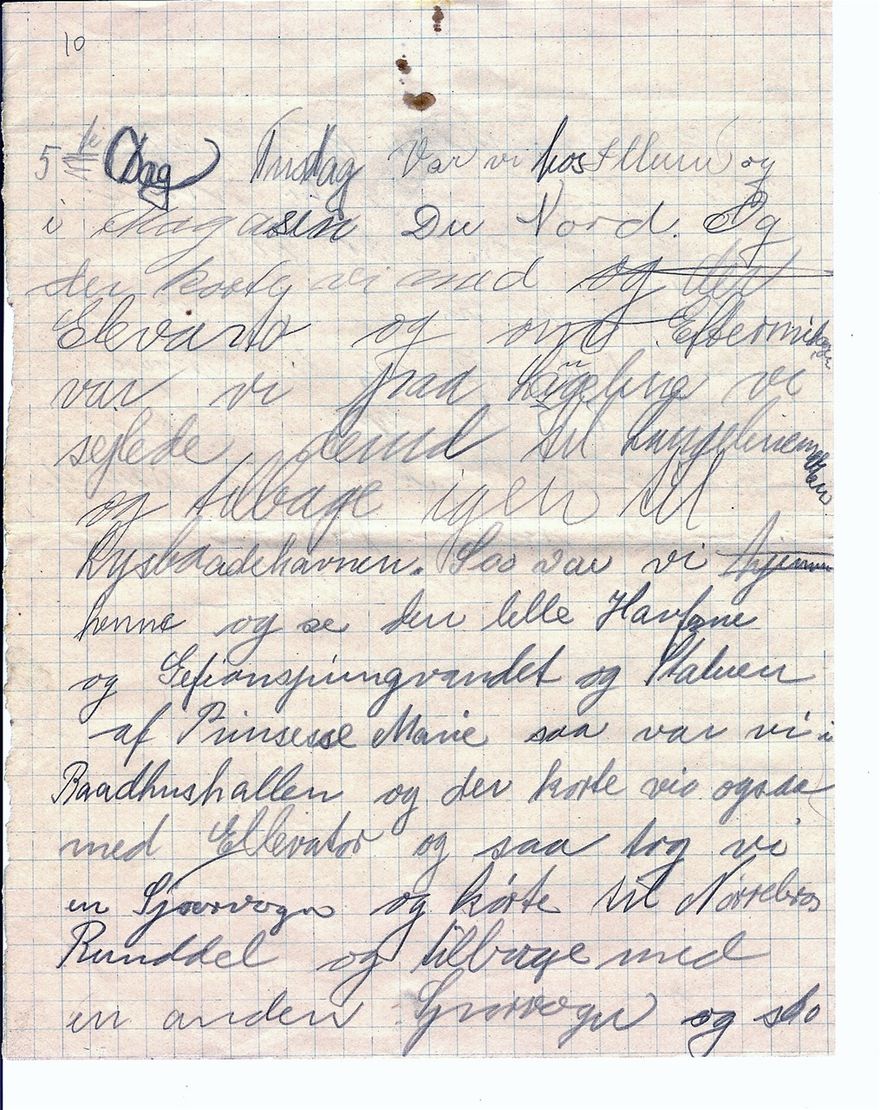 10
5 te Dag Tirsdag Var vi hos Illum og
i Magasin Du Nord. Og
der kørte vi med og der
Elevato og om Eftermidda
var vi paa Lageline vi
sejlede derud til Langelinie
og tilbage igen til
Lysbaadehavnen. Saa var vi hjemme
henne og se den lille Havfrue
og Gefionspringvandet og Statuen
af Prinsesse Marie saa var vi i
Raadhushallen og der kørte vi ogsaa
med Ellevator og saa tog vi
en Sporvogn og kørte til Nørrebros
Runddel og tilbage med
en anden Sporvogn og sto